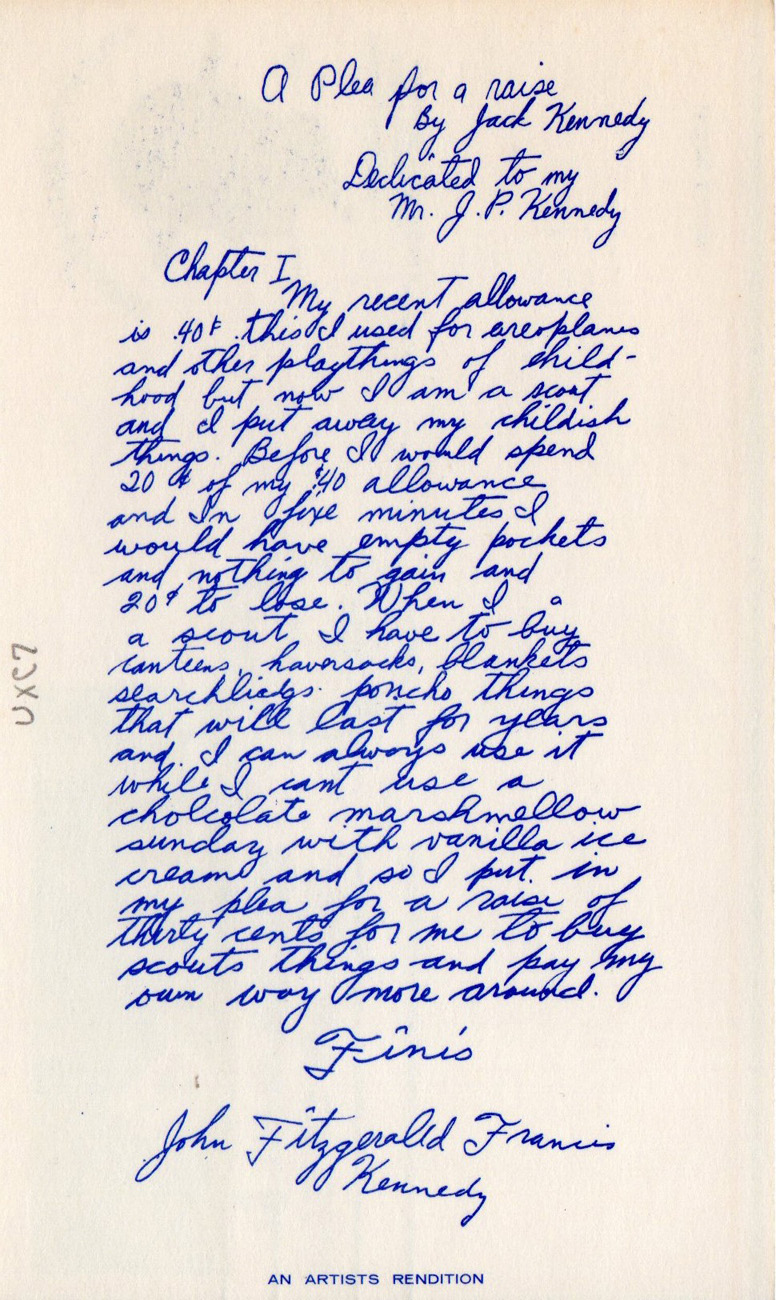 A Plea for a raise
By Jack Kennedy
Dedicated to my
Mr. J. P. Kennedy
Chapter I
My recent allowance
is .40¢ .this I used for areoplanes
and other playthings of child-
hood but now I am a scout
and I put away my childish
things. Before I would spend
20 ¢ of my $.40 allowance
and In five minutes I
would have empty pockets
and nothing to gain and
20¢ to lose. When I a
a scout I have to buy
canteens, haversacks, blankets
searchliags poncho things
that will last for years
and I can always use it
while I cant use a
cholcolate marshmellow
sunday with vanilla ice
cream and so I put in
my plea for a raise of
thirty cents for me to buy
scouts things and pay my
own way more around.
Finis
John Fitzgerald Francis
Kennedy
AN ARTISTS RENDITION
UXC7